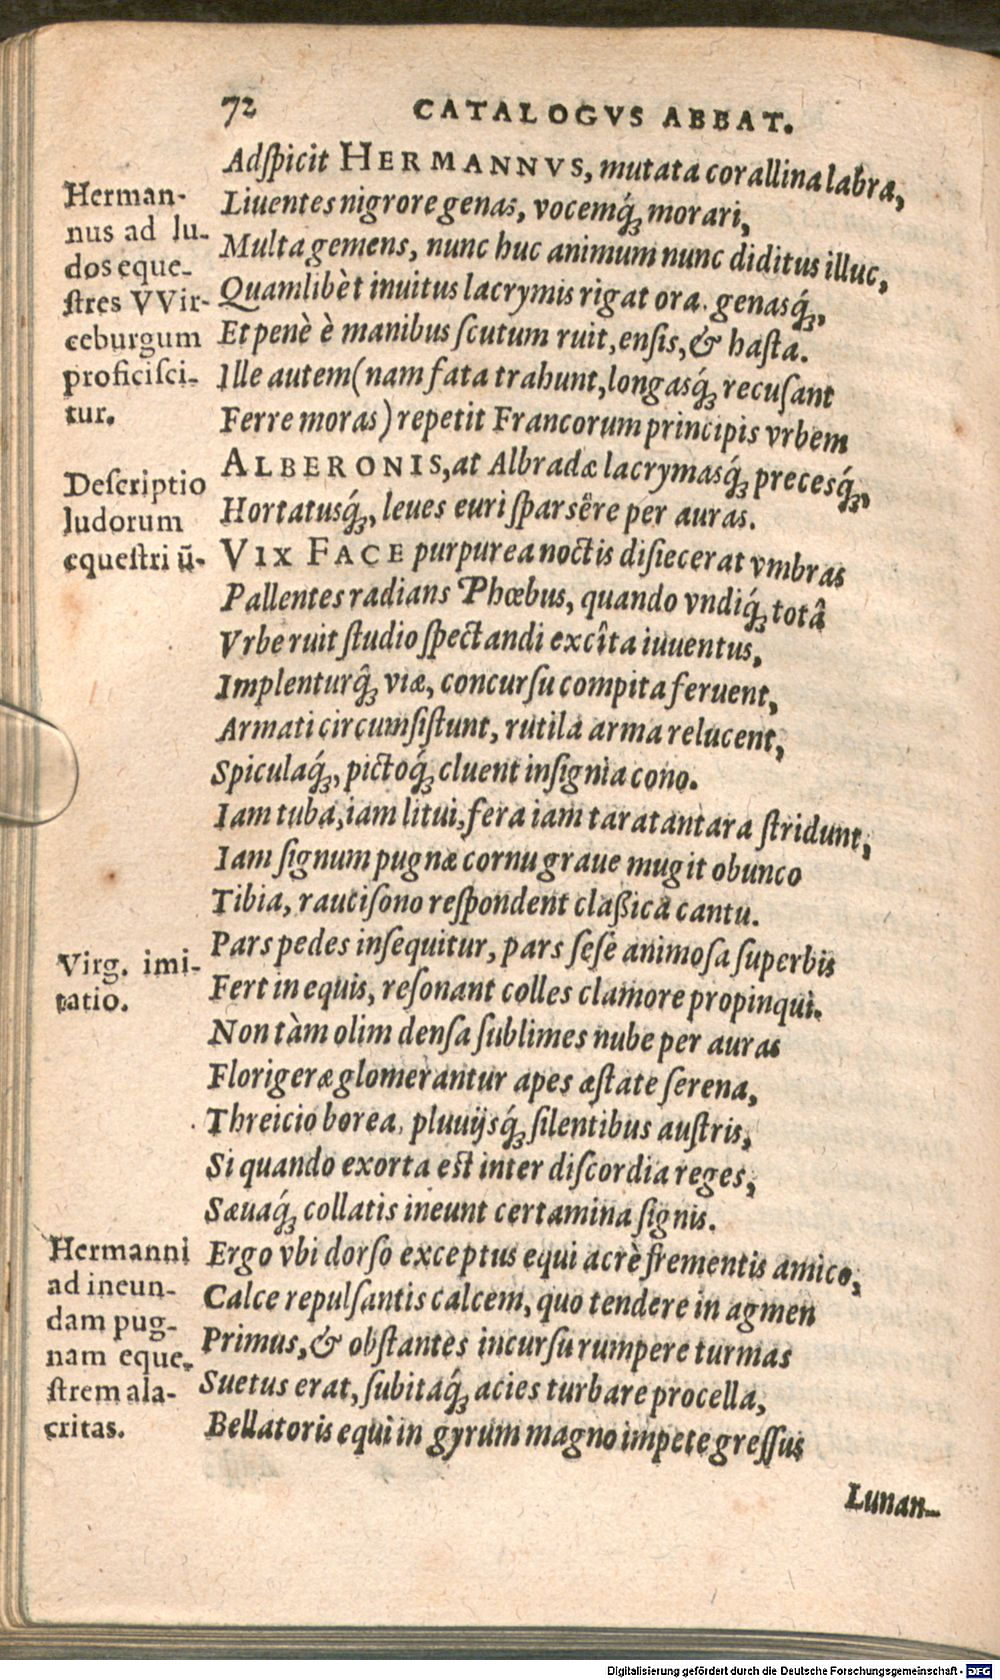 72
CATALOGVS ABBAT.
Adſpicit HERMANNVS, mutata corallina labra,
Liuentes nigrore genas, vocemq́ꝫ morari,
Multa gemens, nunc huc animum nunc diditus illuc,
Quamlibèt inuitus lacrymis rigat ora. genasq́ꝫ,
Et penè è manibus ſcutum ruit, enſis, & haſta.
Ille autem (nam fata trahunt, longasq́ꝫ recuſant
Ferre moras) repetit Francorum principis vrbem
ALBERONIS, at Albradæ lacrymasq́ꝫ precesq́ꝫ,
Hortatusq́ꝫ, leues euri ſparsêre per auras.
VIX FACE purpurea noctis diſiecerat vmbras
Pallentes radians Phœbus, quando vndiq́ꝫ totâ
Vrbe ruit ſtudio ſpectandi excîta iuuentus,
Implenturq̂ꝫ viæ, concurſu compita feruent,
Armati circumſiſtunt, rutila arma relucent,
Spiculaq́ꝫ, pictoq́ꝫ cluent inſignia cono.
Iam tuba, iam litui, fera iam taratantara ſtridunt,
Iam ſignum pugnæ cornu graue mugit obunco
Tibia, rauciſono reſpondent claßica cantu.
Pars pedes inſequitur, pars ſeſe animoſa ſuperbis
Fert in equis, reſonant colles clamore propinqui.
Non tàm olim denſa ſublimes nube per auras
Florigeræ glomerantur apes æſtate ſerena,
Threicio borea, pluuijsq́ꝫ ſilentibus auſtris,
Si quando exorta eſt inter diſcordia reges,
Sæuaq́ꝫ collatis ineunt certamina ſignis.
Ergo vbi dorſo exceptus equi acrè frementis amico,
Calce repulſantis calcem, quo tendere in agmen
Primus, & obſtantes incurſu rumpere turmas
Suetus erat, ſubitaq́ꝫ acies turbare procella,
Bellatoris equi in gyrum magno impete greſſus
Lunan-
Herman-
nus ad lu-
dos eque-
ſtres VVir-
ceburgum
proficiſci-
tur.
Deſcriptio
ludorum
equeſtriũ-
Virg. imi-
tatio.
Hermanni
ad ineun-
dam pug-
nam eque-
ſtrem ala-
critas.
Digitalisierung gefördert durch die Deutsche Forschungsgemeinschaft - DFG